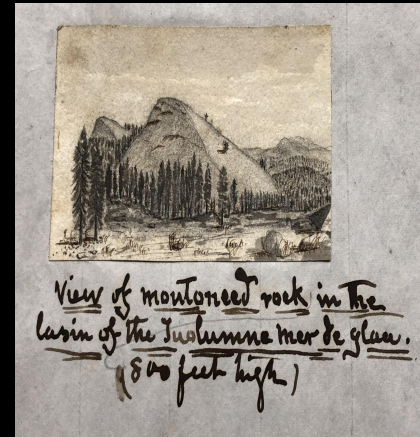 View of moutoneed rock in the
basin of the Tuolumne mer de glace.
(800 feet high)